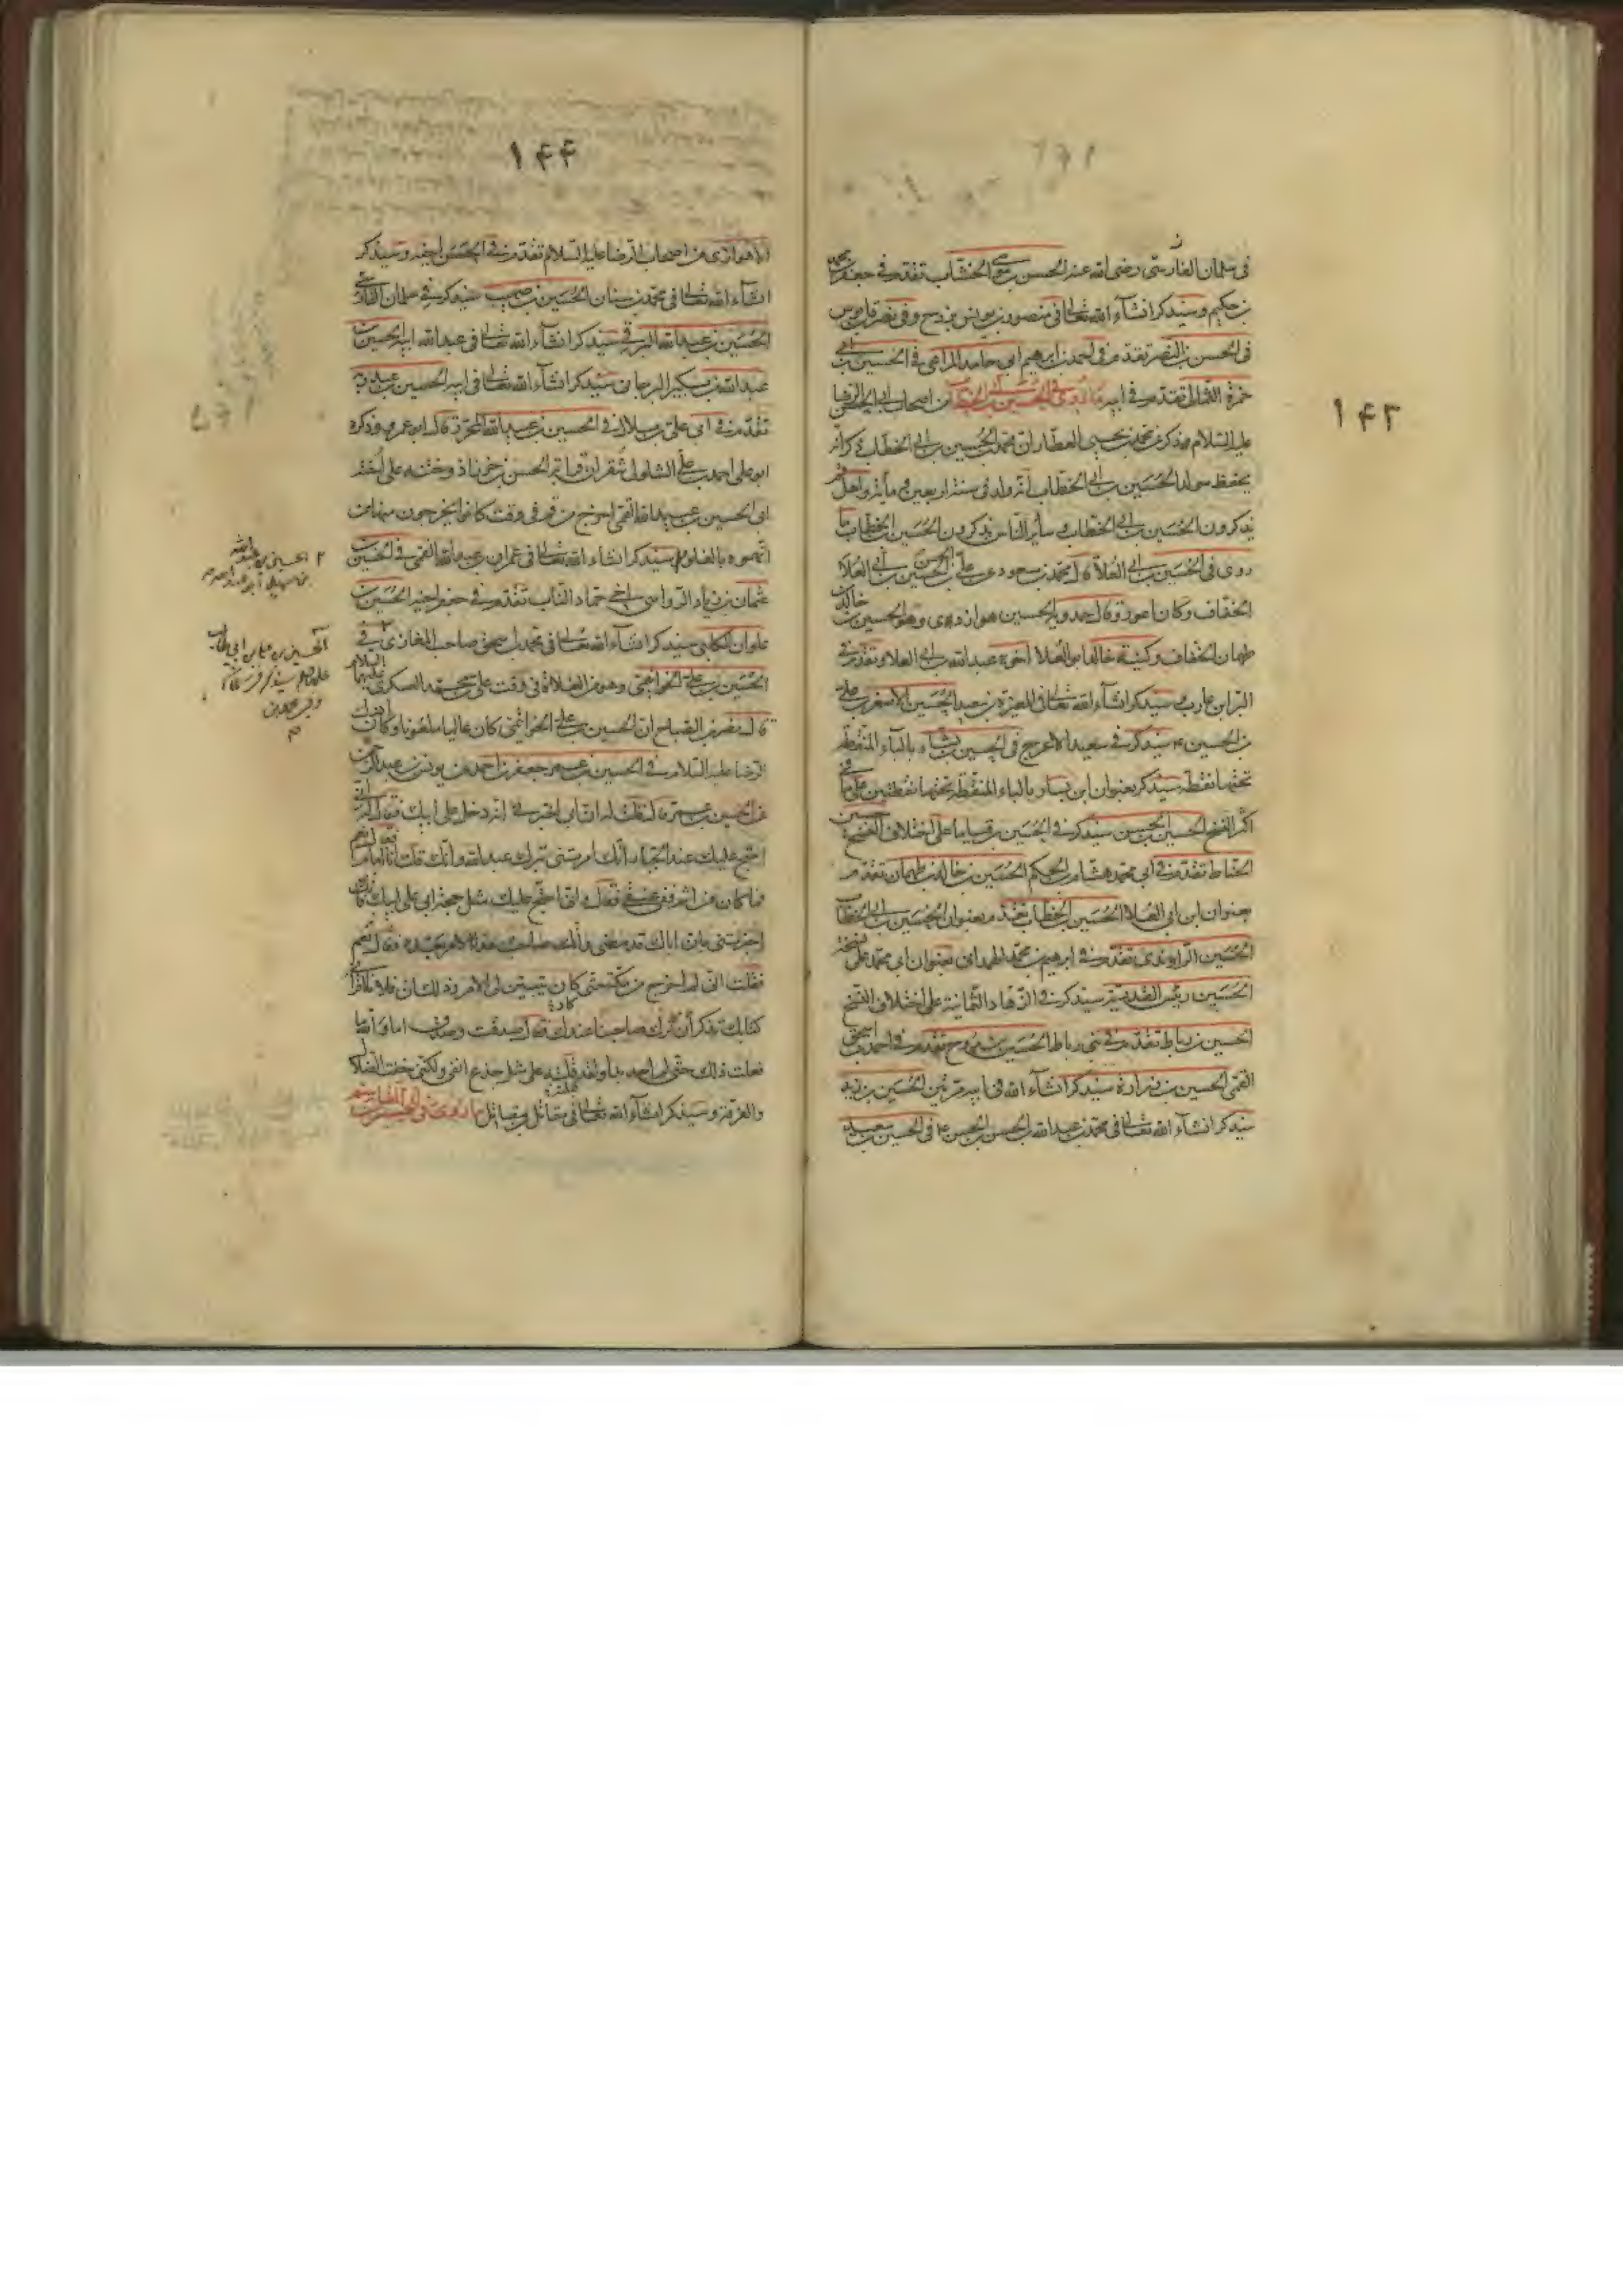 ۱۴۳
فى سلمان الفارسى رضى الله عنه الحسن بن موسى الخشاب تقدم فى جعفر بن محمد
بن حكيم وسيذكر انشآء الله تعالى فى منصور بن يونس بزرج وفى نصر قابوس
فى الحسن بن النضر تقدم فى احمد بن ابرهيم ابى حامد المراغى فى الحسين بن ابى
حمزة الثمالى تقدم فى ابيه ما روى فى الحسين بن ابى الخطاب من اصحاب ابى الحسن الرضا
عليه السلام ذكر عن محمد بن يحيى العطار ان محمد بن الحسين بن ابى الخطاب ذكر انه
يحفظ مولد الحسين بن ابى الخطاب انه ولد فى سنة اربعين ومائة واهل قم
يذكرون الحسين بن ابى الخطاب وسائر الناس يذكرون الحسين بن الخطاب ما
روى فى الحسين بن ابى العلا قال محمد بن مسعود عن على بن الحسن الحسين بن ابى العلا
الخفاف وكان اعور وقال حمدويه الحسين هو ازدى وهو الحسين بن خالد
طهمان الخفاف وكنية خالد ابو العلا اخوه عبد الله بن ابى العلا وتقدم فى
البراء بن عازب وسيذكر انشآء الله تعالى فى المغيرة بن سعيد الحسين الاصغر بن على
بن الحسين ع سيذكر فى سعيد الاعرج فى الحسين بشار بالباء المنقطة
تحتها نقطة سيذكر بعنوان ابن يسار بالياء المنقطة تحتها نقطتين على ما فى
اكثر النسخ الحسين بن الحسن سيذكر فى الحسين بن قياما على اختلاف النسخ حسين
الحناط تقدم فى ابى محمد هشام بن الحكم الحسين بن خالد بن طهمان تقدم
بعنوان ابن ابى العلا الحسين بن الخطاب تقدم بعنوان الحسين بن ابى الخطاب
الحسين الراوندى تقدم فى ابرهيم بن محمد الهمدانى بعنوان ابى محمد على نسخة
الحسين رئيس القدرية سيذكر فى الزهاد الثمانية على اختلاف النسخ
الحسين بن رباط تقدم فى بنى رباط الحسين بن روح تقدم فى احمد بن اسحق
القمى الحسين بن زرارة سيذكر انشآء الله فى ابيه مرتين الحسين بن زيد
سيذكر انشآء الله تعالى فى محمد بن عبد الله بن الحسن بن الحسن ع فى الحسين بن سعيد
۱۴۴
الاهوازى من اصحاب الرضا عليه السلام تقدم فى الحسن اخيه وسيذكر
انشآء الله تعالى فى محمد بن سنان الحسين بن صهيب سيذكر فى سلمان الفارسى
الحسين بن عبد الله سيذكر انشآء الله تعالى فى عبد الله ابيه الحسين بن
عبد الله بن بكير الرجانى سيذكر انشآء الله تعالى فى ابيه الحسين بن عبد ربه
تقدم فى ابى على بن بلال فى الحسين بن عبيد الله المحرر قال ابو عمرو ذكره
ابو على احمد بن على السلولى شقران قرابة الحسن بن خرزاذ وختنه على اخته
ان الحسين بن عبيد الله القمى اخرج من قم فى وقت كانوا يخرجون منها من
اتهموه بالغلو سيذكر انشاء الله تعالى فى عمران بن عبد الله القمى فى الحسين بن
عثمان بن زياد الرواسى اخى حماد الناب تقدم فى جعفر اخيه الحسين بن
علوان الكلبى سيذكر انشاء الله تعالى فى محمد بن اسحق صاحب المغازى فى
الحسين بن على الخواتيمى وهو من الغلاة فى وقت على بن محمد العسكرى عليهما السلام
قال نصر بن الصباح ان الحسين بن على الخواتيمى كان غاليا ملعونا وكان ادرك
الرضا عليه السلام فى الحسين بن عمر جعفر بن احمد عن يونس بن عبد الرحمن
عن الحسين بن عمر قال قلت له ان ابى اخبرنى انه دخل على ابيك فقال له انى
احتج عليك عند الجبار انك امرتنى بترك عبد الله وانك قلت انا امام فقال نعم
فما كان من اثم ففى عنقى فقال وانى احتج عليك بمثل حجة ابى على ابيك فانك
اخبرتنى بان اباك قد مضى وانك صاحب هذا الامر بعده فقال نعم
فقلت انى لم اخرج من مكة حتى كان يتبين لى الامر
كتابك تذكر ان ترك صاحبنا عند فقال صدقت وصدق اما والله ما
فعلت ذلك حتى لم اجد بدا ولقد قلته على مثل جدع انفى ولكنى خفت الضلال
والفرقة وسيذكر انشآء الله تعالى فى مقاتل بن مقاتل ما روى فى
۲ الحسين بن عبد الله
الحسين بن على بن ابى طالب